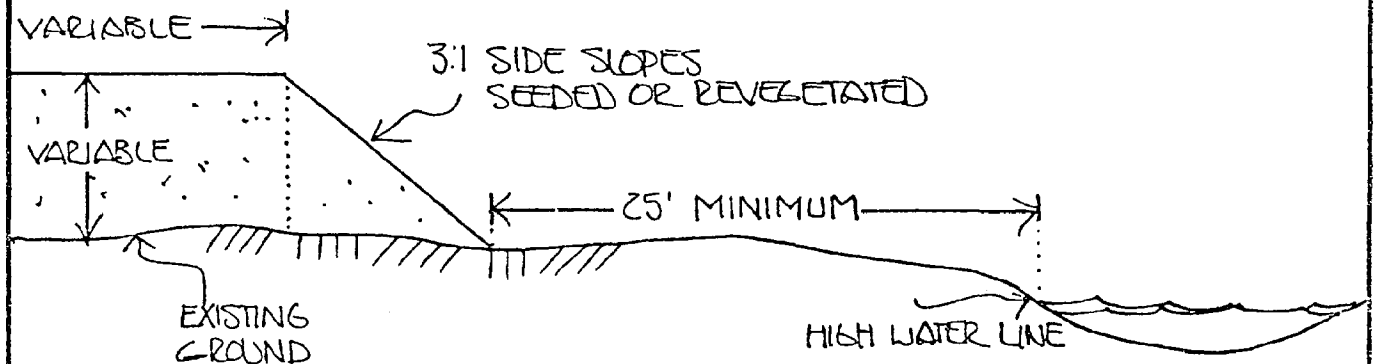 VARIABLE
3:1 SIDE SLOPES
SEEDED OR REVEGETATED
VARIABLE
25' MINIMUM
EXISTING
GROUND
HIGH WATER LINE